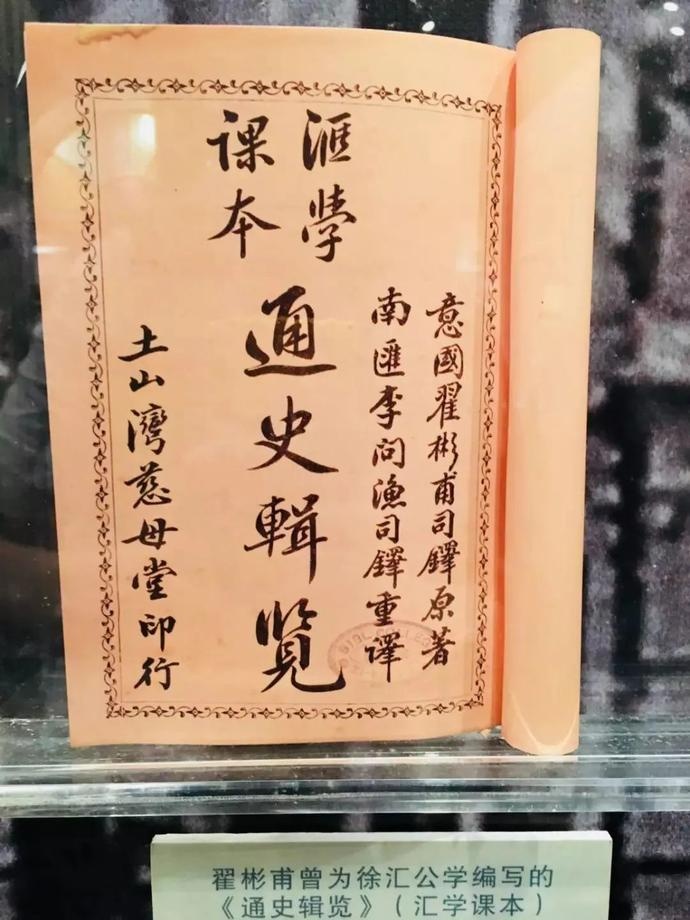 滙學
課本
意國翟彬甫司鐸原著
南匯李问漁司鐸重譯
通史輯覽
土山灣慈母堂印行
翟彬甫曾为徐汇公学编写的
《通史辑览》（汇学课本）